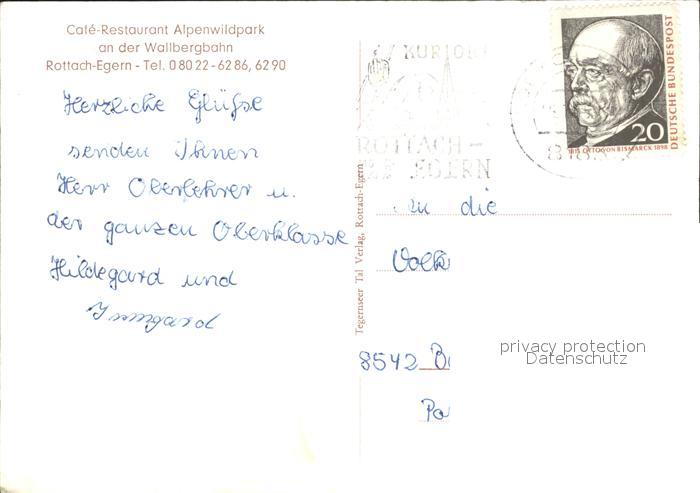 Café-Restaurant Alpenwildpark
an der Wallbergbahn
Rottach-Egern - Tel. 0 80 22 - 62 86, 62 90
Herzliche Grüße
senden Ihnen
Herr Oberlehrer u.
der ganzen Oberklasse
Hildegard und
Irmgard
Tegernseer Tal Verlag, Rottach-Egern
KURORT
ROTTACH-
EGERN
8183
DEUTSCHE BUNDESPOST
20
1815 OTTO VON BISMARCK 1898
An die
Volk
8542
Po
privacy protection
Datenschutz